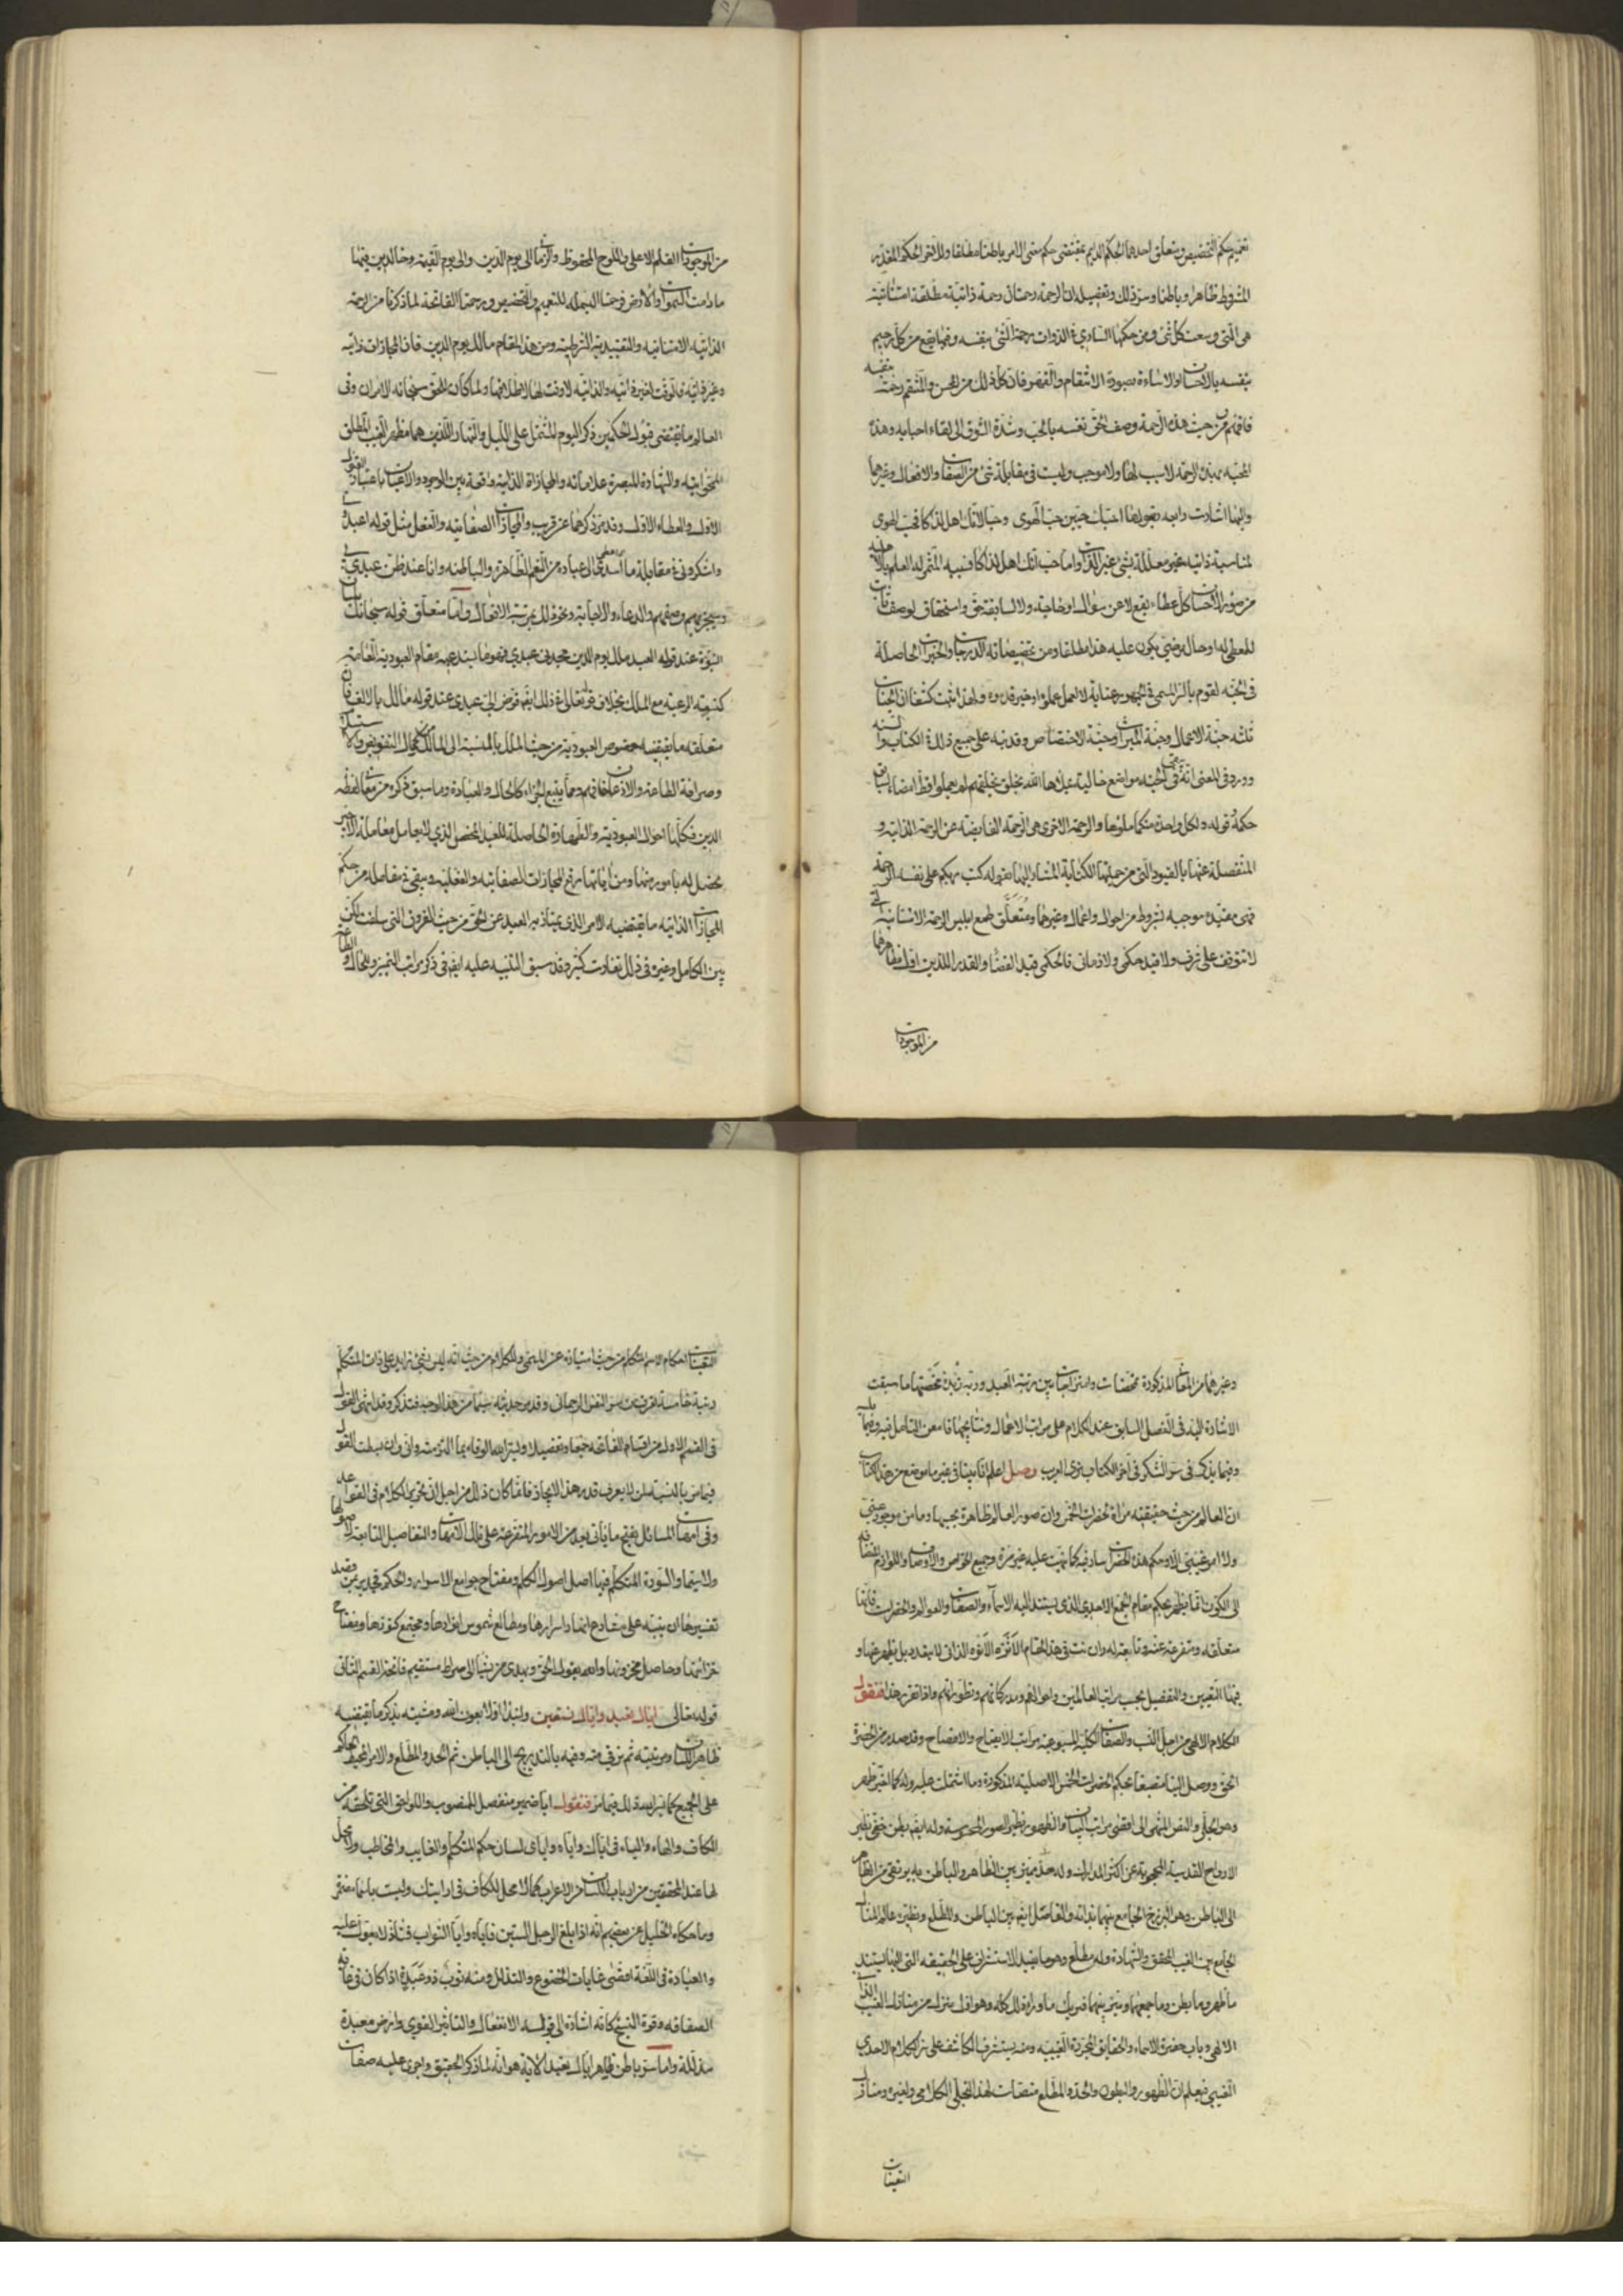 تعميم حكم التخصيص ويتعلق احدهما الحكم الدايم بمقتضى حكم معنى الامر باطنا مطلقا وللآخر الحكم المقيد
المشروط ظاهرا وباطنا وسر ذلك وتفصيله ان الرحمة رحمتان رحمة ذاتية مطلقة امتنانية
هي التي وسعت كل شئ ومن حكمها الساري في الذوات رحمة الشئ بنفسه وفيها يقع من كل رحيم
بنفسه بالاحسان او الاساءة بصورة الانتقام والقهر فان كل ذلك من المحسن والمنتقم رحمة بنفسه
فافهم ومن حيث هذه الرحمة وصف الحق نفسه بالحب وشدة الشوق الى لقاء احبابه وهذه
المحبة بهذه الرحمة لا سبب لها ولا موجب وليست في مقابلة شئ من الصفات والافعال وغيرهما
واليها اشارت رابعة بقولها احبك حبين حب الهوى وحبا لانك اهل لذاكا فحب الهوى
لمناسبة ذاتية غير معللة بشئ غير الذات واما حب انك اهل لذاكا فسببه المثمر له العلم بالاهلية
من صور الاحسان كل عطاء يقع لا عن سؤال او حاجة ولا لسابقة حق واستحقاق لوصف ثابت
للمعطى له او حال مرضي يكون عليه هذا مطلقا ومن تخصيصاته الدرجات والخيرات الحاصلة
في الجنة لقوم بالسر المسمى في الجمهور عناية لا لعمل عملوه او خير قدموه ولهذا ثبت كشفا ان الجنات
ثلثة جنة الاعمال وجنة الميراث وجنة الاختصاص وقد نبه على جميع ذلك في الكتاب والسنة
وورد في المعنى انه يبقى في الجنة مواضع خالية يملأها الله بخلق يخلقهم لم يعملوا قط امضاء لسابق
حكمه قوله ولكل واحدة منكما ملؤها والرحمة الاخرى هي الرحمة الفايضة عن الرحمة الذاتية و
المنفصلة عنها بالقيود التي من جملتها الكتابة المشار اليها بقوله كتب ربكم على نفسه الرحمة
فهي مقيدة موجبة بشروط من احوال واعمال وغيرها ومتعلق طمع ابليس الرحمة الامتنانية التي
لا تتوقف على شرط ولا قيد حكمي ولا زماني فالحكمي قيد القضا والقدر اللذين اول مظاهرهما
من الموجودات
من الموجودات القلم الاعلى واللوح المحفوظ والزماني الى يوم الدين والى يوم القيمة وخالدين فيها
ما دامت السموات والارض فرحمتا البسملة للتعميم والتخصيص ورحمتا الفاتحة لما ذكرنا من الرحمة
الذاتية الامتنانية والتقييدية الشرطية ومن هذا المقام مالك يوم الدين فان المجازات ذاتية
وغير ذاتية فالوقت لغير ذاتية والذاتية لا وقت لها لاطلاقها ولما كان الحق سبحانه لا يران وفي
العالم ما يقتضى قبول الحكمين ذكر اليوم المشتمل على الليل والنهار اللذين هما مظهر الغيب المطلق
والشهادة المبصرة علاماته والمجازاة الذاتية واقعة بين الوجود والاعيان باعتبار القبول
الاول والعطاء الاول وقد مر ذكرهما عن قريب والمجازات الصفاتية والفعلية مثل قوله اعبدوني
واشكروني في مقابلة ما اسديته الى عبادي من النعم الظاهرة والباطنة وانا عند ظن عبدي بي
وسيجزيهم وصفهم والدعاء والاجابة ونحو ذلك بمرتبة الافعال واما متعلق قوله سبحانه بلسان
النبوة عند قول العبد ملك يوم الدين مجدني عبدي فهو ما يستدعيه مقام العبودية العامة
كنسبة الرعية مع الملك بخلاف قوله تعالى في ذلك ايضا فوض الي عبدي عند قوله مالك بالالف فان
متعلقه ما يقتضيه خصوص العبودية من حيث الملك بالنسبة الى المالك فمحال التفويض والاستسلام
وصرافة الطاعة والاذعان فافهم ومما يتبع الجزاء كالحال والعبادة وما سبق ذكره من معاني لفظة
الدين فكلها احوال العبودية والطهارة الحاصلة للعبد المخلص الذي لا يعامل معاملة الاجير
يحصل له بامور منها ومن آياتها رفع المجازات الصفاتية والفعلية ويبقى في مقابله من حكم
المجازات الذاتية ما يقتضيه الامر الذي يمتاز به العبد عن الحق من حيث الفروق التي سلفت لكن
بين الكامل وغيره في ذلك تفاوت كثير وقد سبق التنبيه عليه ايضا في ذكر مراتب التميز والحال والطاعة
وغيرهما من المعاني المذكورة محضات وامتزاجات بين مرتبة العبد وربه زبدة مخضتها ما سبقت
الاشارة اليه في الفصل السابق عند الكلام على مراتب الاعمال ونتايجها فامعن التامل فيه وفيما يليه
وفيما يذكر في سر الشكر في آخر الكتاب ترى العجب وصل اعلم انا بينا في غير ما موضع من هذا الكتاب
ان العالم من حيث حقيقته مرآة لحضرات الخمس وان صور العالم ظاهرة بحسبها وما من موجود عيني
ولا امر غيبي الا وحكم هذه الحضرات سار فيه كما نبهت عليه غير مرة وجميع الخواص والاوصاف واللوازم المضافة
الى الكون انما يظهر بحكم مقام الجمع الاحدي الذي يستند اليه الاسماء والصفات والعوالم والحضرات فانها
متعلقة ومتفرعة عنه وتابعة له وان نسب في هذا المقام الانزه الانوه الذاتي لا يتعدد بل يظهر عنها و
فيها التعيين والتفصيل بحسب مراتب العالمين واحوالهم ومدركاتهم وتطوراتهم واذا تقرر هذا فنقول
الكلام الالهي من اجل النسب والصفات الكلية المستوعبة مراتب الايضاح والافصاح وقد صدر من الحضرة
الحق ووصل الينا منصبغا بحكم الحضرات الخمس الاصلية المذكورة وما اشتملت عليه وله كما القبر ظهر
وهو الجلي والنص المنتهي الى اقصى مراتب البيان والظهور نظير الصور المحسوسة وله ايضا بطن خفي نظير
الارواح القدسية المحجوبة عن اكثر المدارك وله حد مميز بين الظاهر والباطن به يرتقى من الظاهر
الى الباطن وهو البرزخ الجامع بينهما بذاته والفاصل ايضا بين الباطن والمطلع ونظيره عالم المثال
الجامع بين الغيب المحقق والشهادة وله مطلع وهو ما يفيد الاستشراف على الحقيقة التي اليها يستند
ما ظهر وما بطن وما جمعهما وميز بينهما فيريك ما وراء ذلك كله وهو اول منزل من منازل الغيب الذاتي
الالهي وباب حضرة الاسماء والحقايق المجردة الغيبية ومنه يستشرف المكاشف على سر الكلام الاحدي
الغيبي فيعلم ان الظهور والبطون والحد والمطلع منصات لهذا التجلي الكلامي ولغيره ومنازل
التعينات
التعينات احكام الاسم المتكلم من حيث امتيازه عن المسمى وللكلام من حيث انه ليس بشئ زايد على ذات المتكلم
رتبة خامسة تعرف من سر النفس الرحماني وقد مر حديثه سيما من هذا الوجه فتذكر وقد انتهى القول
في القسم الاول من اقسام الفاتحة جمعا وتفصيلا ويسر الله الوفاء بما التزمته واني وان بسطت القول
فيما مر بالنسبة لمن لا يعرف قدر هذا الايجاز فانما كان ذلك من اجل ان تحرير الكلام في القواعد
وفي امهات المسائل يفتح ما يأتي بعد من الامور المتفرعة على تلك الامهات والتفاصيل التابعة لاصولها
ولا سيما والسورة المتكلم فيها اصل اصول الكلم ومفتاح جوامع الاسرار والحكم فجدير لمن قصد
تفسيرها ان ينبه على مشارع انهار اسرارها ومطالع شموس انوارها ومجتمع كنوزها ومفتاح
خزائنها وحاصل مخزونها والله يقول الحق ويهدي من يشاء الى صراط مستقيم فاتحة القسم الثاني
قوله تعالى اياك نعبد واياك نستعين ولنبدا اولا بعون الله ومشيته بذكر ما يقتضيه
ظاهر اللسان ومرتبته ثم نرقى منه وفيه بالتدريج الى الباطن ثم الحد والمطلع والامر المحيط الحاكم
على الجميع كما يسر الله ذلك فيما مر فنقول ايا ضمير منفصل للمنصوب واللواحق التي تلحقه من
الكاف والهاء والياء في اياك واياه واياي لبيان حكم المتكلم والغايب والمخاطب ولا محل
لها عند المحققين من ارباب اللسان من الاعراب كما لا محل للكاف في ارايتك وليست باسماء مضمرة
وما حكاه الخليل عن بعضهم انه اذا بلغ الرجل الستين فاياه وايا الشواب فشاذ لا يعول عليه
والعبادة في اللغة اقصى غايات الخضوع والتذلل ومنه ثوب ذو عبدة اذا كان في غاية
الصفاقة وقوة النسج كانه اشارة الى قبوله الانفعال والتاثير القوي وارض معبدة
مذللة واما سر باطن ظاهر اياك نعبد الآية هو انه لما ذكر الحقيق واجرى عليه صفات